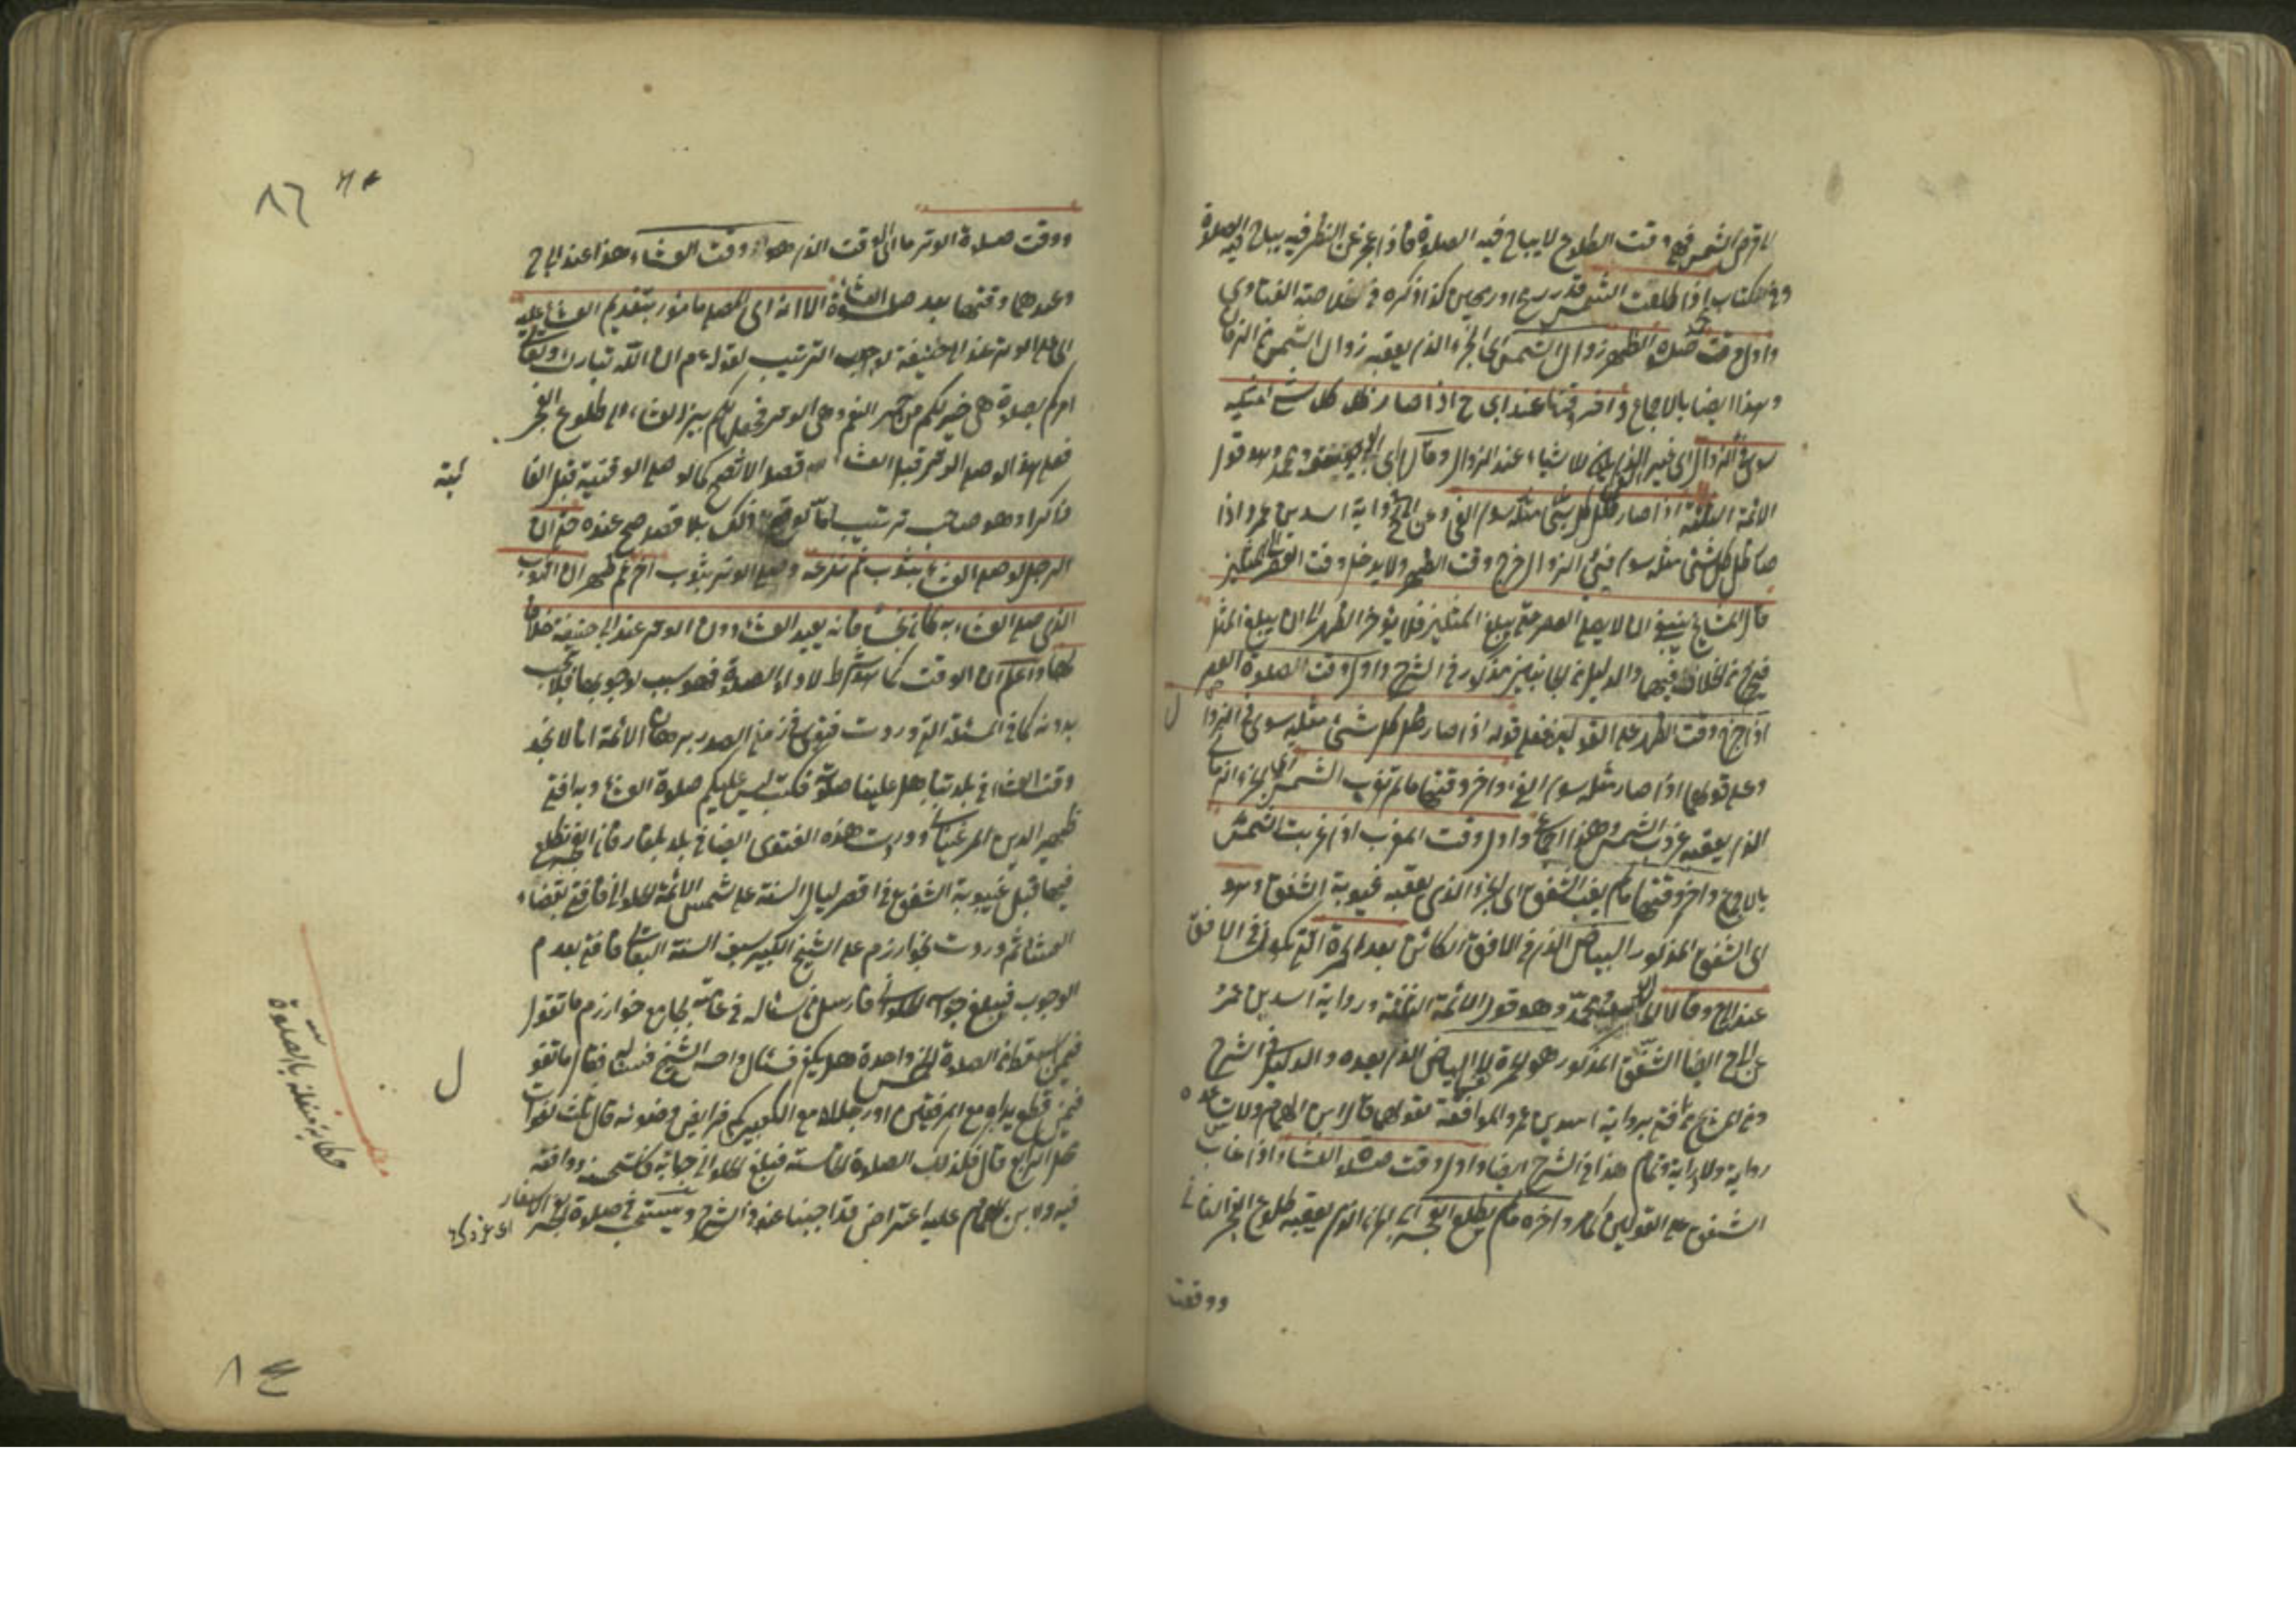 الى قرص الشمس فهي وقت الطلوع لا يباح فيه الصلوة فاذا عجز عن النظر فيه يباح فيه الصلوة
وفي الكتاب اذا طلعت الشمس قدر رمح او رمحين كذا ذكره في خلاصة الفتاوى
واول وقت صلاة الظهر زوال الشمس اى الجزء الذى يعقبه زوال الشمس من الزمان
وهذا ايضا بالاجماع وآخر وقتها عند ابى ح اذا صار ظل كل شئ مثليه
سوى فئ الزوال اى غير الفئ الذى يكون للاشياء عند الزوال وقالا اى ابو يوسف ومحمد وهو قول
الائمة الثلثة اذا صار ظل كل شئ مثله سوى الفئ وعن ابى ح رواية اسد بن عمرو اذا
صار ظل كل شئ مثله سوى فئ الزوال خرج وقت الظهر ولا يدخل وقت العصر الى المثلين
قال المشايخ ينبغى ان لا يصلى العصر حتى يبلغ المثلين فلا يؤخر الظهر الى ان يبلغ المثل
فيخرج من الخلاف فيهما والدليل من الجانبين مذكور فى الشرح واول وقت الصلوة العصر
اذا خرج وقت الظهر على القولين فعلى قوله اذا صار ظل كل شئ مثليه سوى فئ الزوال
وعلى قولهما اذا صار مثله سوى الفئ وآخر وقتها ما لم تغرب الشمس اى الجزء الزمانى
الذى يعقبه غروب الشمس وهذا اجماع واول وقت المغرب اذا غربت الشمس
بالاجماع وآخر وقتها ما لم يغب الشفق اى الجزء الذى يعقبه غيبوبة الشفق وهو
اى الشفق المذكور البياض الذى فى الافق الكائن بعد الحمرة التى تكون فى الافق
عند ابى ح وقالا اى ابو يوسف ومحمد وهو قول الائمة الثلثة ورواية اسد بن عمرو
عن ابى ح ايضا الشفق المذكور هو الحمرة لا البياض الذى بعده والدليل فى الشرح
ومن المشايخ من افتى برواية اسد بن عمرو الموافقة لقولهما قال ابن الهمام ولا تساعده
رواية ولا دراية وتمام هذا فى الشرح ايضا واول وقت صلاة العشاء اذا غاب
الشفق على القولين كما مر وآخره ما لم يطلع الفجر اى الجزء الذى يعقبه طلوع الفجر الثانى
ووقت
ووقت صلاة الوتر ما اى الوقت الذى هو وقت العشاء هذا عند ابى ح
وعندهما وقتها بعد صلوة العشاء الا انه اى المصلى مأمور بتقديم العشاء عليه
اى على الوتر عند ابى حنيفة لوجوب الترتيب لقوله عم ان الله تبارك وتعالى
امركم بصلاة هى خير لكم من حمر النعم وهى الوتر فجعل لكم بين العشاء الى طلوع الفجر
فعلى هذا لو صلى الوتر قبل العشاء قصدا لا تصح كما لو صلى الوقتية قبل الفا
ئتة
ذاكرا وهو صاحب ترتيب اما لو وقع ذلك بلا قصد صح عنده حتى ان
الرجل لو صلى العشاء بثوب ثم نزعه وصلى الوتر بثوب آخر ثم ظهر ان الثوب
الذى صلى العشاء به كان نجسا فانه يعيد العشاء دون الوتر عند ابى حنيفة خلافا
لهما واعلم ان الوقت كما هو شرط لاداء الصلوة فهو سبب لوجوبها فلا تجب
بدونه كما فى المسئلة التى وردت فتوى فى زمن الصدر برهان الائمة انا لا نجد
وقت العشاء فى بلدتنا هل علينا صلوة فكتب ليس عليكم صلاة العشاء وبه افتى
ظهير الدين المرغينانى ووردت هذه الفتوى ايضا فى بلد بلغار فان الفجر يطلع
فيها قبل غيبوبة الشفق فى اقصر ليالى السنة على شمس الائمة الحلوانى فافتى بقضاء
العشاء ثم وردت بخوارزم على الشيخ الكبير سيف السنة البقالى فافتى بعدم
الوجوب فبلغ جوابه الحلوانى فارسل من يسئاله فى عامته بجامع خوارزم ما تقول
فيمن اسقط من الصلاة الخمس واحدة هل يكفر فسئال واحس الشيخ فقال ما تقول
فيمن قطع يداه مع المرفقين او رجلاه مع الكعبين كم فرايض وضوئه قال ثلث لفوات
محل الرابع قال فكذلك الصلاة الخامسة فبلغ الحلوانى جوابه فاستحسنه ووافقه
فيه ولابن الهمام عليه اعتراض قد اجبنا عنه فى الشرح ويستحب فى صلوة الفجر الاسفار
حكاية متعلقة بالصلوة
٨٦